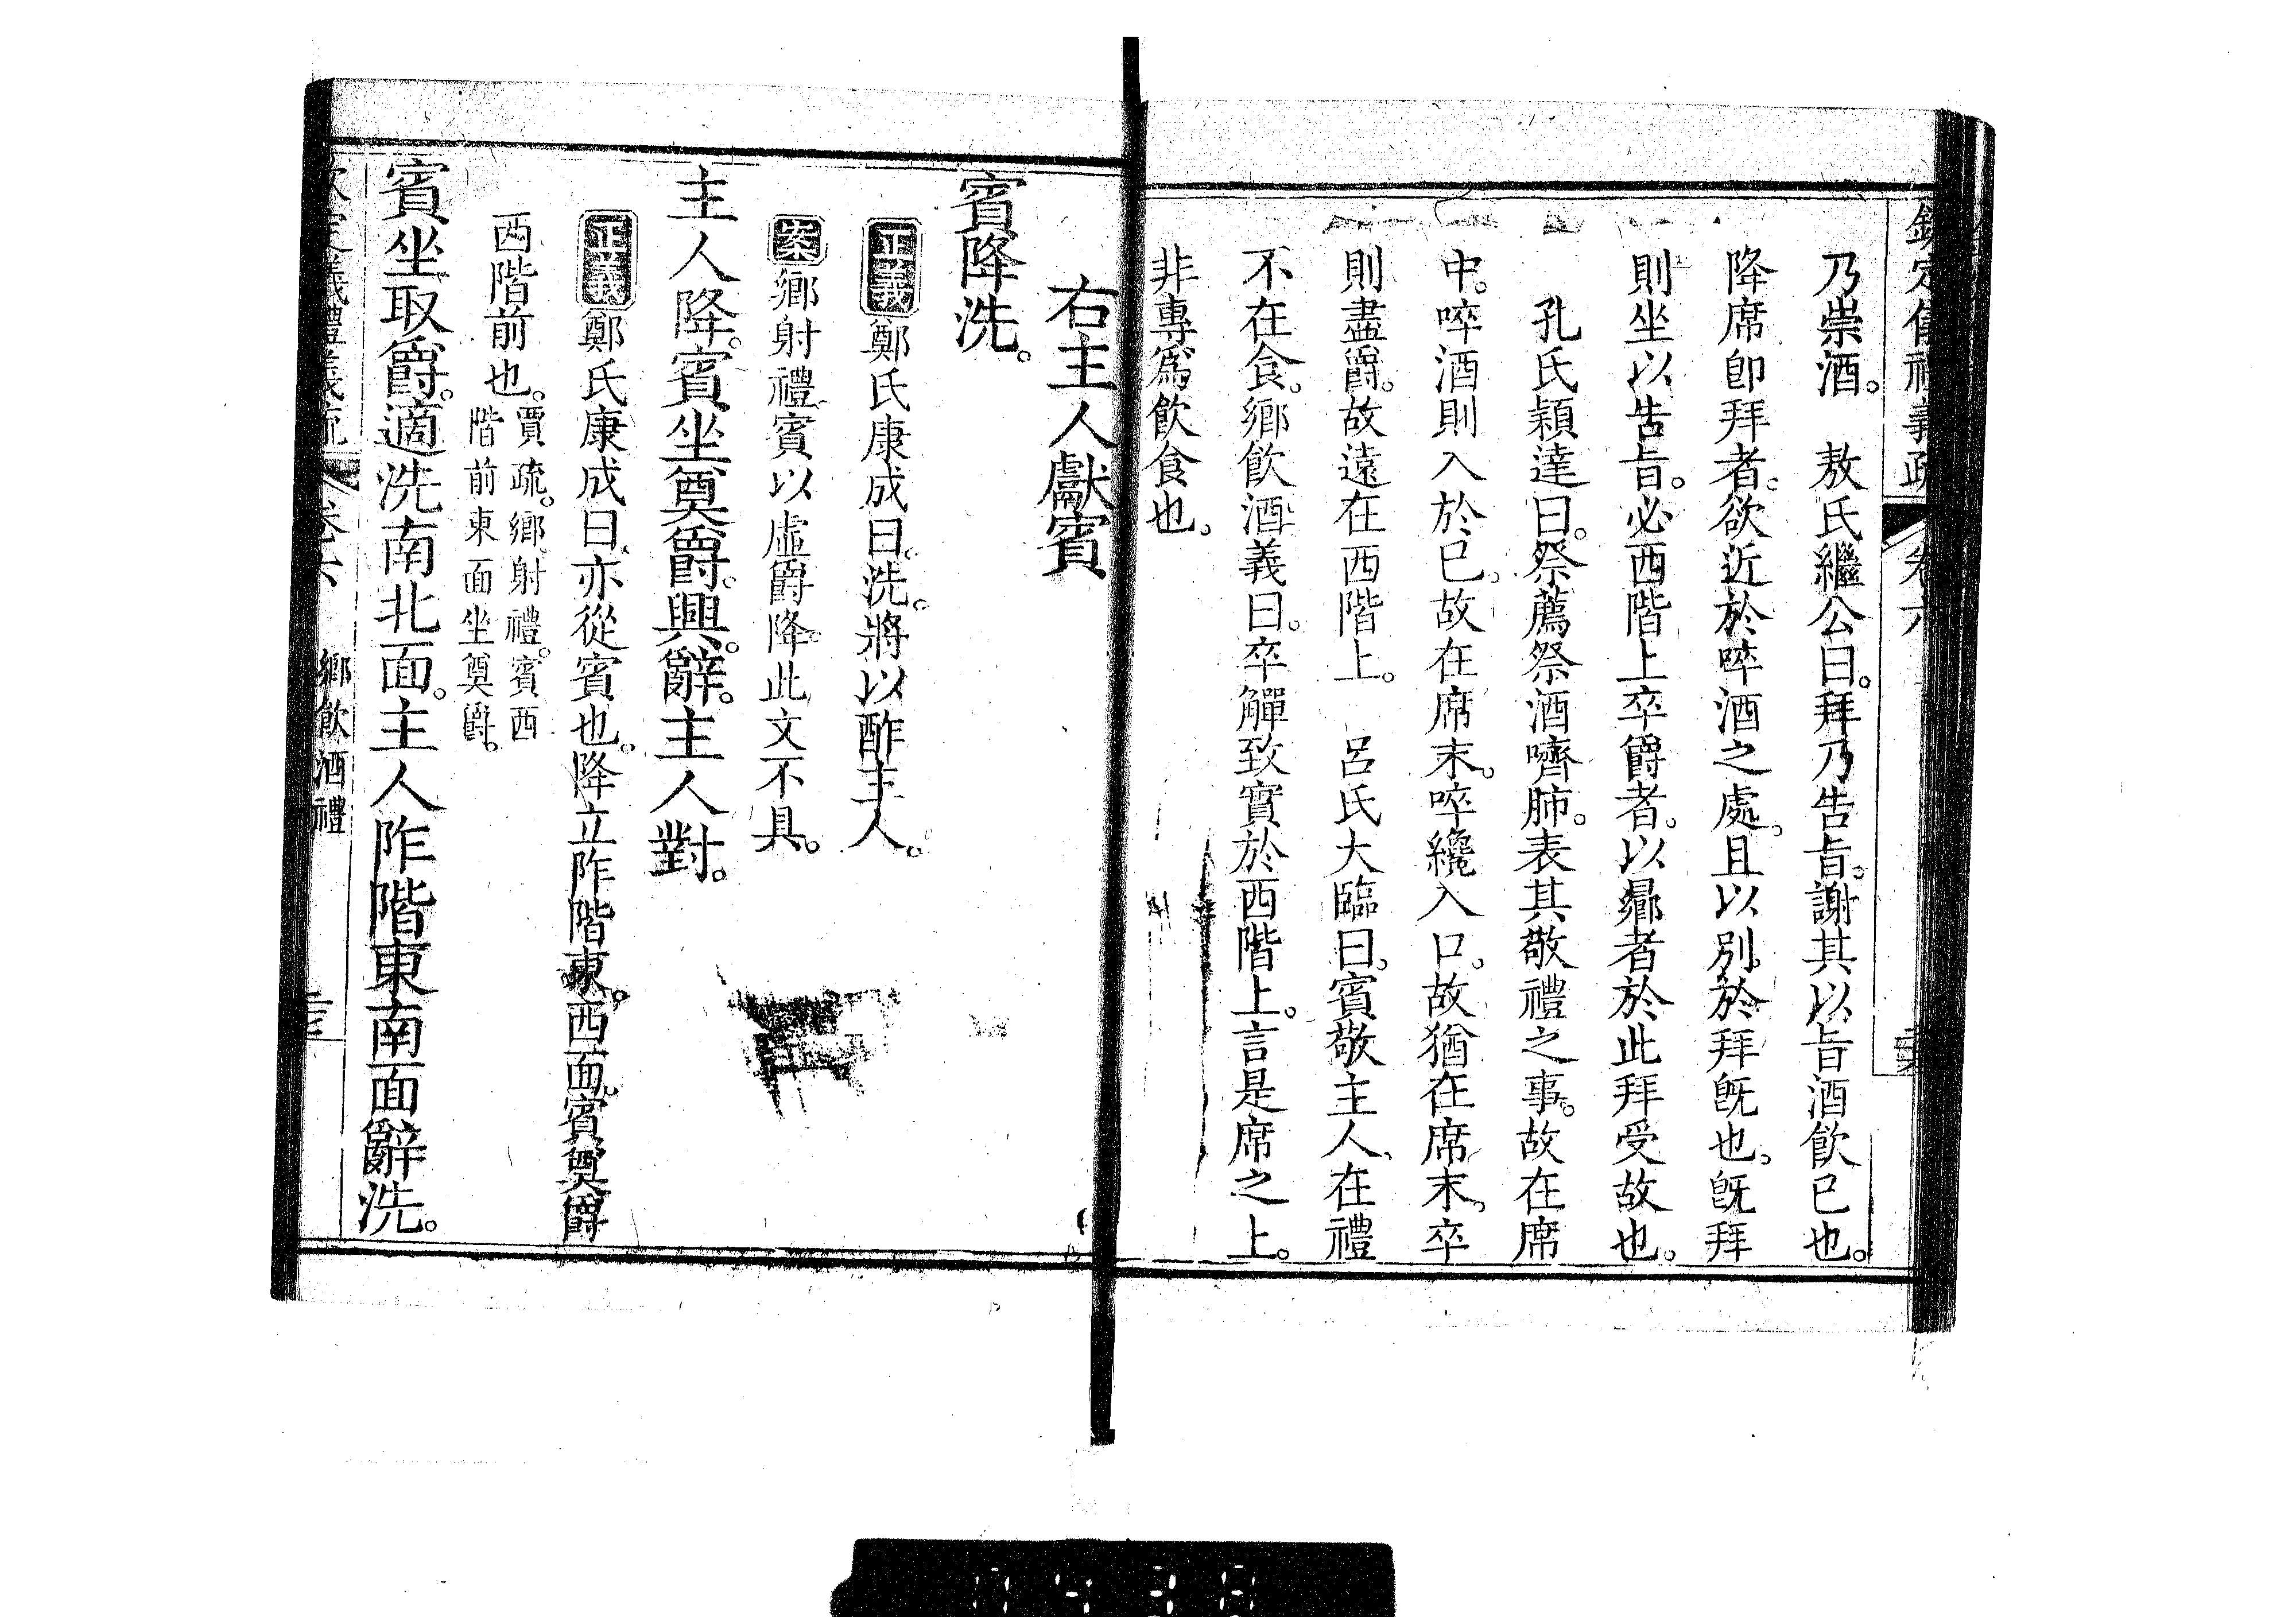 欽定儀禮義疏 卷六
乃崇酒。 敖氏繼公曰。拜乃告旨。謝其以旨酒飲已也。
降席卽拜者。欲近於啐酒之處。且以別於拜旣也。旣拜
則坐以告旨。必西階上卒爵者。以曏者於此拜受故也。
孔氏穎達曰。祭薦祭酒嚌肺。表其敬禮之事。故在席
中。啐酒則入於已。故在席末。啐纔入口。故猶在席末。卒
則盡爵。故遠在西階上。 呂氏大臨曰。賓敬主人。在禮
不在食。鄉飲酒義曰。卒觶致實於西階上。言是席之上。
非專爲飲食也。
右主人獻賓
賓降洗。
正義鄭氏康成曰。洗。將以酢主人。
案鄉射禮。賓以虛爵降。此文不具。
主人降。賓坐奠爵。興。辭。主人對。
正義鄭氏康成曰。亦從賓也。降立阼階東。西面。賓奠爵
西階前也。賈疏。鄉射禮。賓西
階前東面坐奠爵。
賓坐取爵。適洗南北面。主人阼階東南面辭洗。
欽定儀禮義疏 卷六 鄉飲酒禮